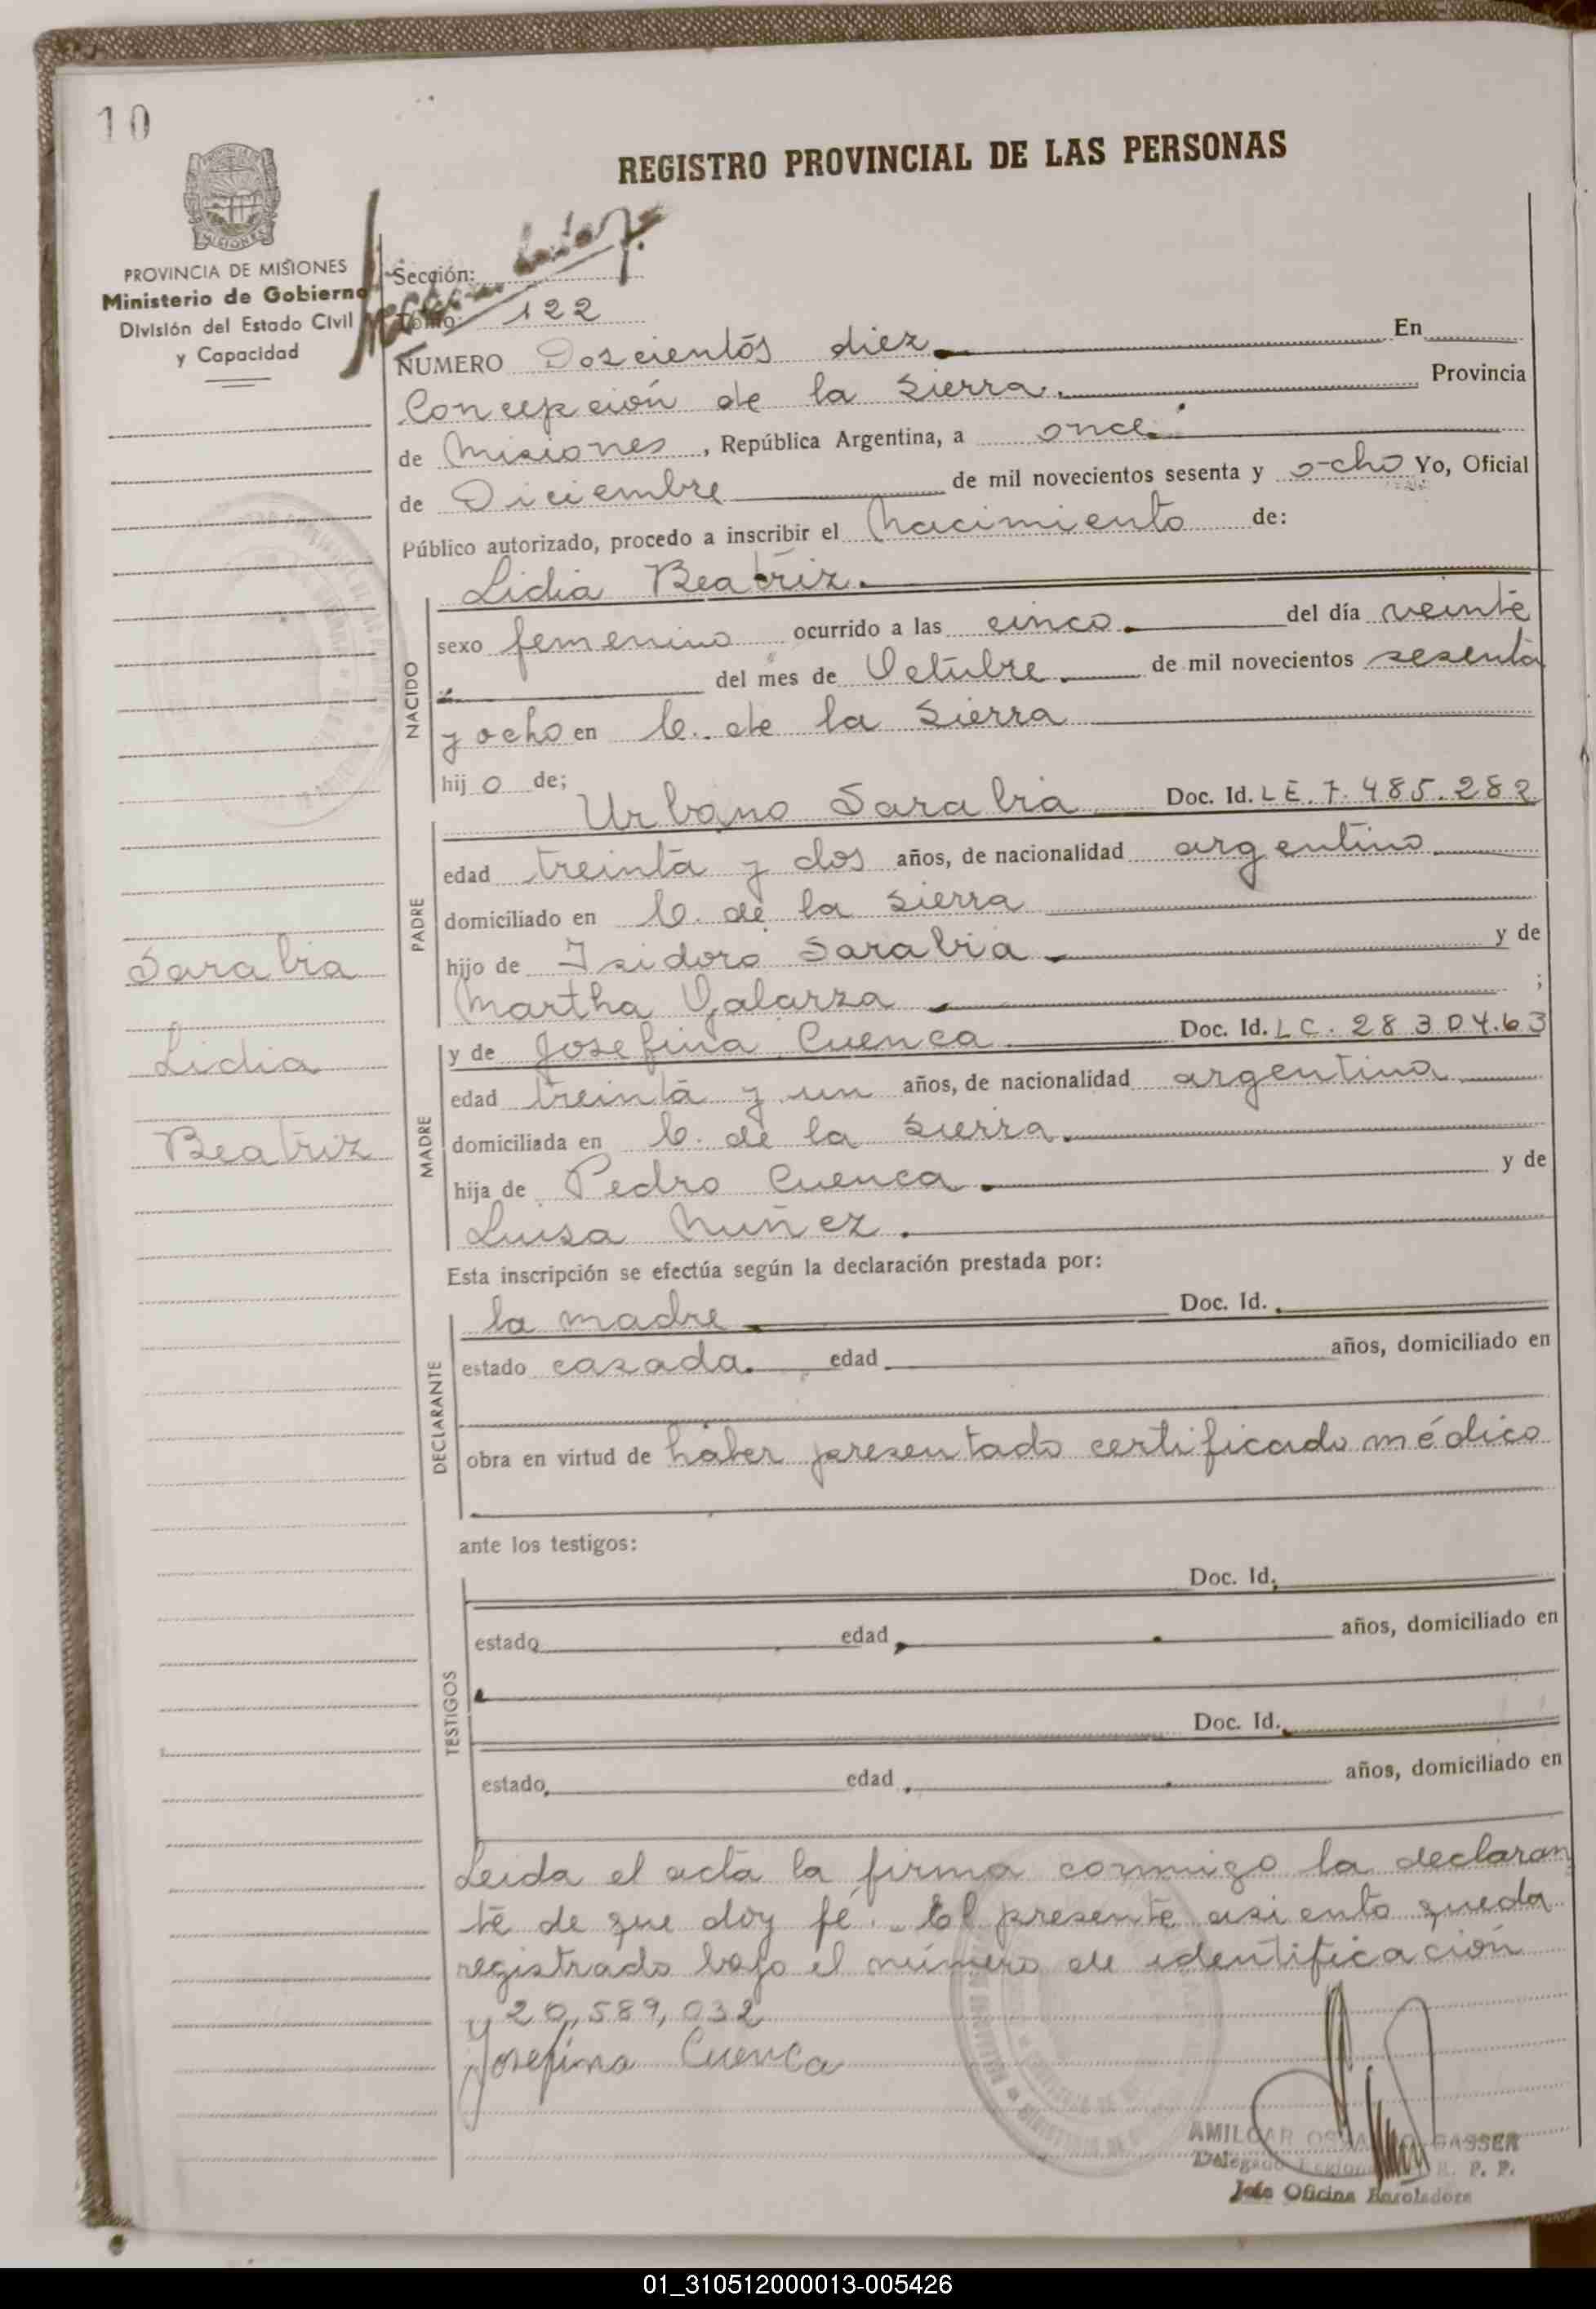 10
REGISTRO PROVINCIAL DE LAS PERSONAS
MISIONES
PROVINCIA DE MISIONES
Ministerio de Gobierno
División del Estado Civil
y Capacidad
Sección:
Tomo: 122
NUMERO Doscientos diez En
Concepción de la Sierra. Provincia
de Misiones, República Argentina, a once
de Diciembre de mil novecientos sesenta y ocho Yo, Oficial
Público autorizado, procedo a inscribir el Nacimiento de:
NACIDO
Lidia Beatriz.
sexo femenino ocurrido a las cinco. del día veinte
del mes de Octubre. de mil novecientos sesenta
y ocho en C. de la Sierra
hijo de;
PADRE
Urbano Sarabia Doc. Id. LE. 7.485.282
edad treinta y dos años, de nacionalidad argentino
domiciliado en C. de la Sierra
hijo de Isidoro Sarabia y de
Martha Galarza ;
MADRE
y de Josefina Cuenca Doc. Id. LC. 2830463
edad treinta y un años, de nacionalidad argentina
domiciliada en C. de la Sierra.
hija de Pedro Cuenca. y de
Luisa Nuñez.
Sarabia
Lidia
Beatriz
Esta inscripción se efectúa según la declaración prestada por:
DECLARANTE
la madre Doc. Id.
estado casada. edad años, domiciliado en
obra en virtud de haber presentado certificado médico
ante los testigos:
TESTIGOS
Doc. Id.
estado edad años, domiciliado en
Doc. Id.
estado edad años, domiciliado en
Leida el acta la firma conmigo la declaran
te de que doy fé. El presente asiento queda
registrado bajo el número de identificación
20,589,032
Josefina Cuenca
AMILCAR GASSER
Delegado R. P. P.
Jefe Oficina Enroladora
01_310512000013-005426